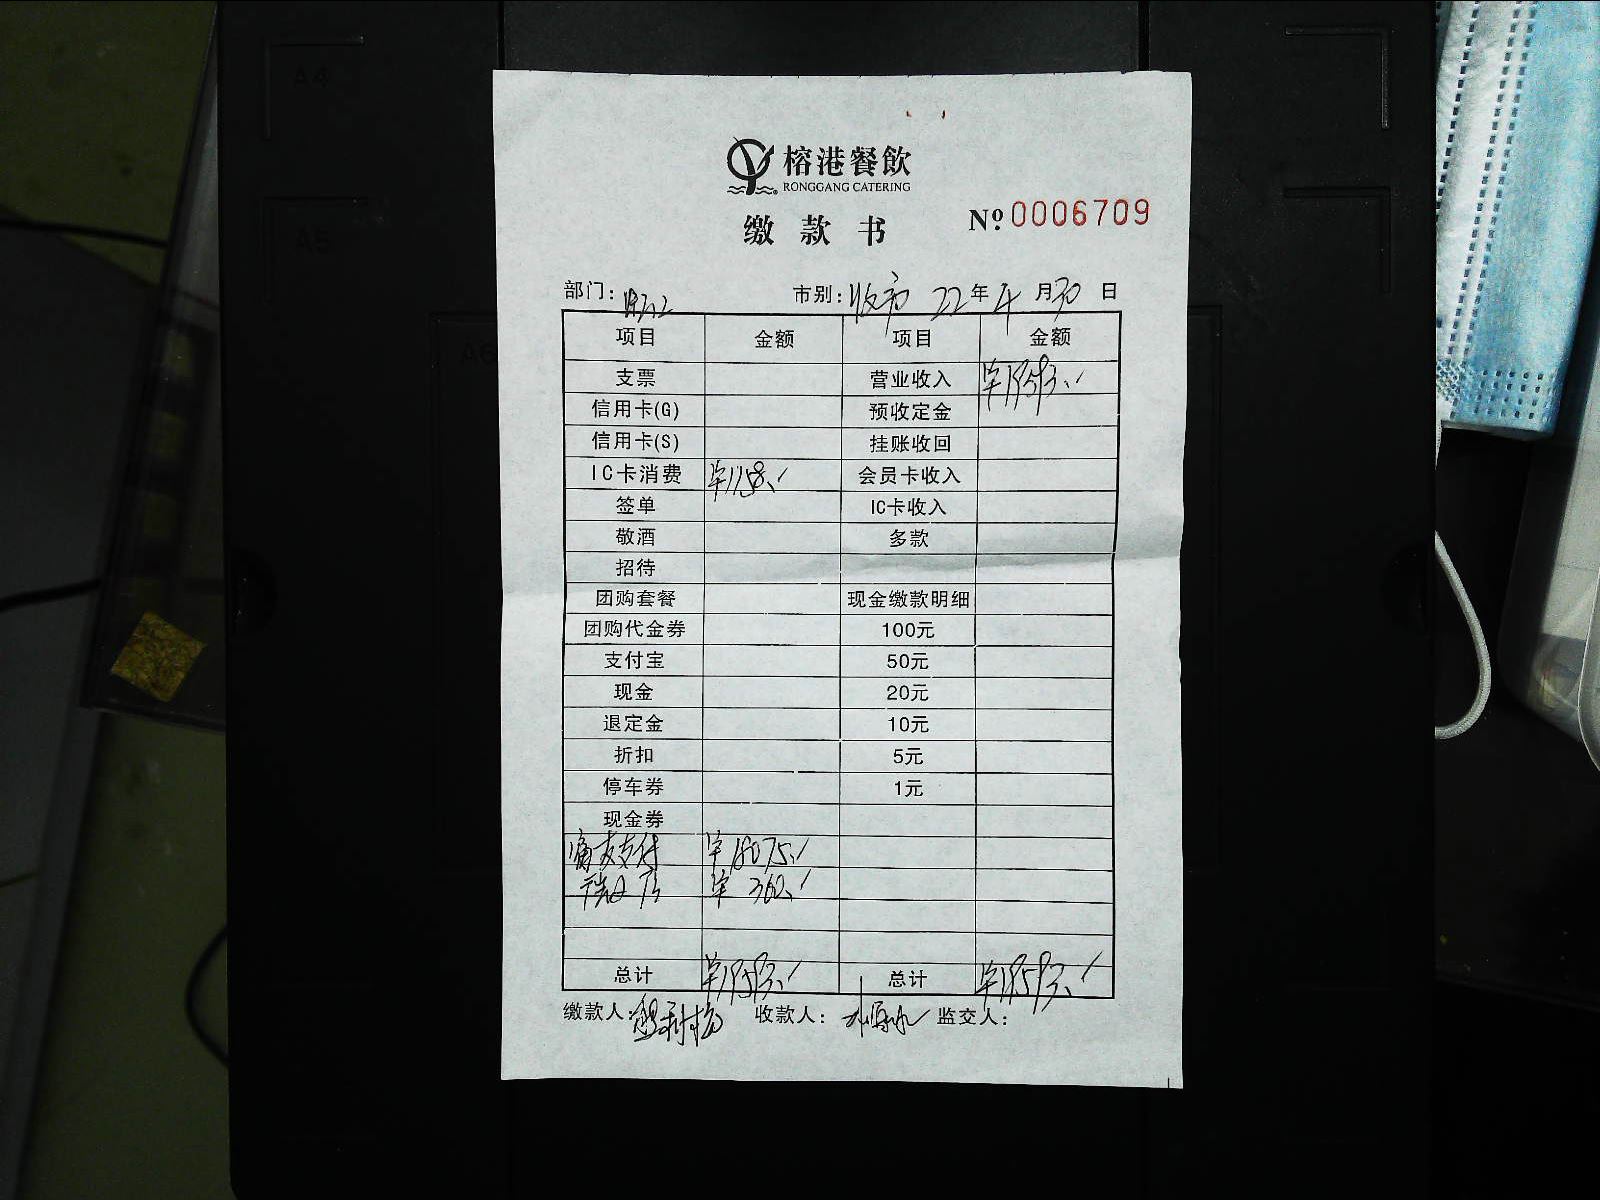 榕港餐飲
RONGGANG CATERING
缴款书 №0006709
部门: 市别:收市 22年4月30日
项目 金额 项目 金额
支票 营业收入 ¥19593.
信用卡(G) 预收定金
信用卡(S) 挂账收回
IC卡消费 ¥1158. 会员卡收入
签单 IC卡收入
敬酒 多款
招待
团购套餐 现金缴款明细
团购代金券 100元
支付宝 50元
现金 20元
退定金 10元
折扣 5元
停车券 1元
现金券
支付 ¥18075.
¥360.
总计 ¥19593. 总计 ¥19593.
缴款人: 收款人: 监交人:
A4
A5
A6